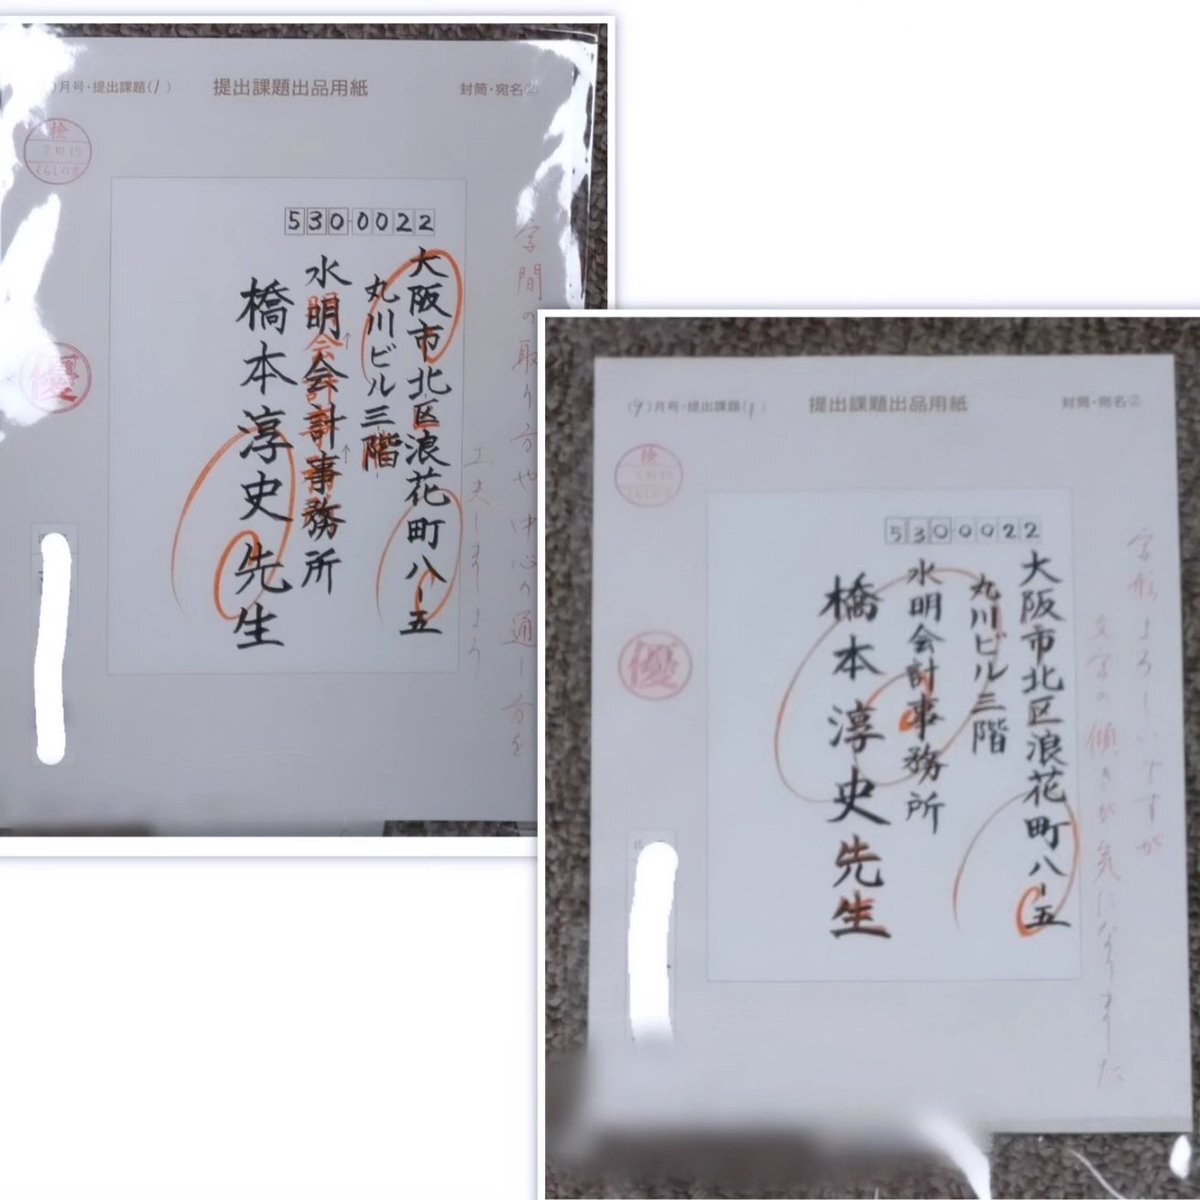 月号・提出課題(1)
提出課題出品用紙
封筒・宛名②
検
7.10.15
くらしの書
優
5300022
大阪市北区浪花町八-五
丸川ビル三階
水明会計事務所
橋本淳史先生
字間の取り方や中心の通し方を
工夫しましょう
(9)月号・提出課題(1)
提出課題出品用紙
封筒・宛名②
検
優
5300022
大阪市北区浪花町八-五
丸川ビル三階
水明会計事務所
橋本淳史先生
字形よろしいですが
文字の傾きが気になりました